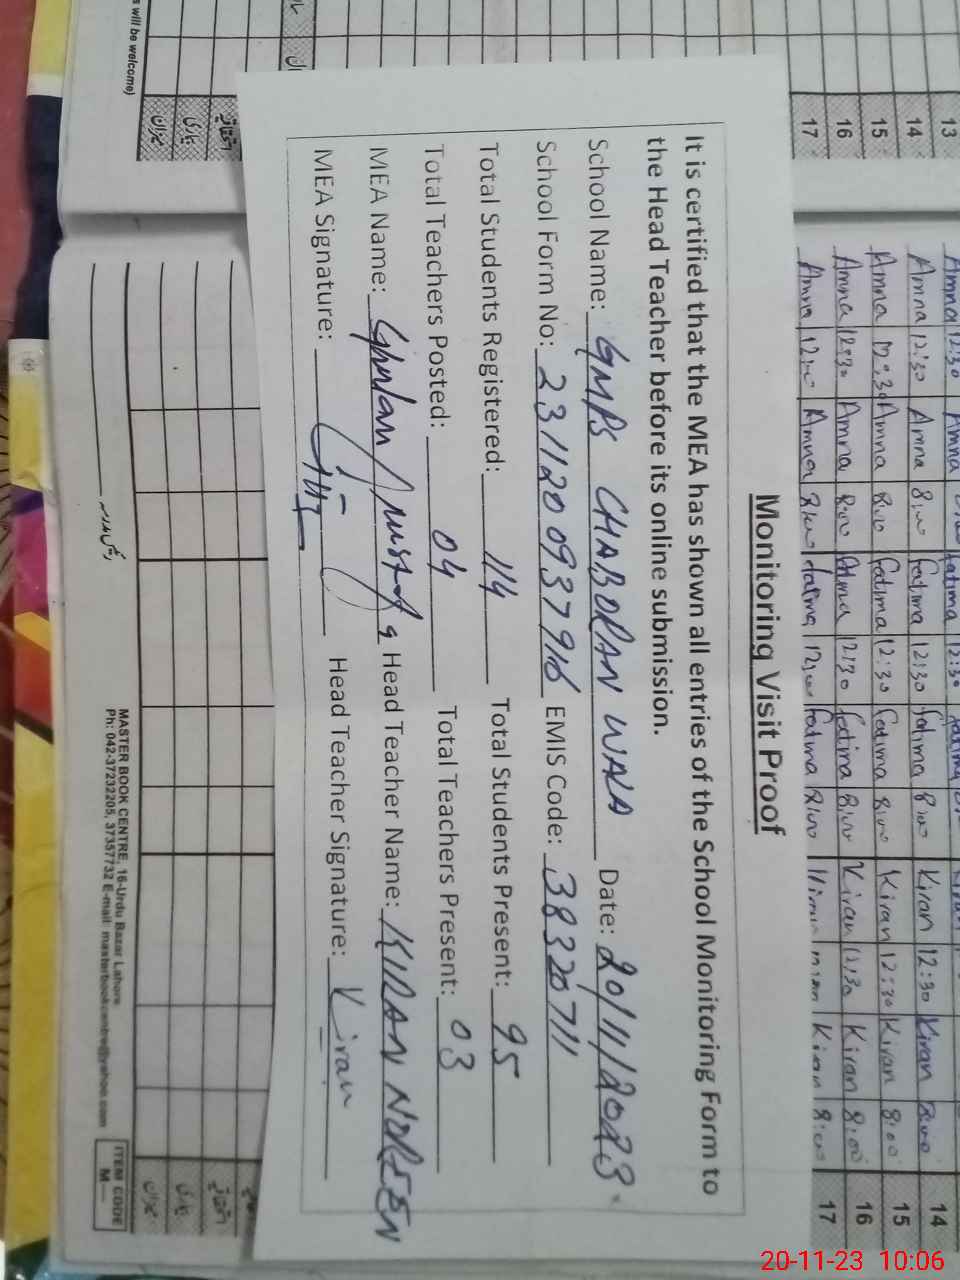 Monitoring Visit Proof
It is certified that the MEA has shown all entries of the School Monitoring Form to
the Head Teacher before its online submission.
School Name: GMPS CHABDRAN WALA Date: 20/11/2023
School Form No: 2311200937916 EMIS Code: 38320711
Total Students Registered: 114 Total Students Present: 95
Total Teachers Posted: 04 Total Teachers Present: 03
MEA Name: Ghulam Mustafa Head Teacher Name: KIRAN NOREEN
MEA Signature: Head Teacher Signature: Kiran
s will be welcome)
13
14
15
16
17
Amna 12:30 Amna Fatima 12:30
Amna 12:30 Amna 8:00 Fatima 12:30 Fatima 8:00 Kiran 12:30 Kiran 8:00 14
Amna 12:30 Amna 8:00 Fatima 12:30 Fatima 8:00 Kiran 12:30 Kiran 8:00 15
Amna 12:30 Amna 8:00 Fatima 12:30 Fatima 8:00 Kiran 12:30 Kiran 8:00 16
Amna 12:00 Amna 8:00 Fatima 12:00 Fatima 8:00 Kiran Kiran 8:00 17
اتفاقیہ
بیماری
میزان
MASTER BOOK CENTRE, 16-Urdu Bazar Lahore.
Ph: 042-37232205, 37357732 E-mail: masterbookcentre@yahoo.com
ITEM CODE
M—
20-11-23 10:06